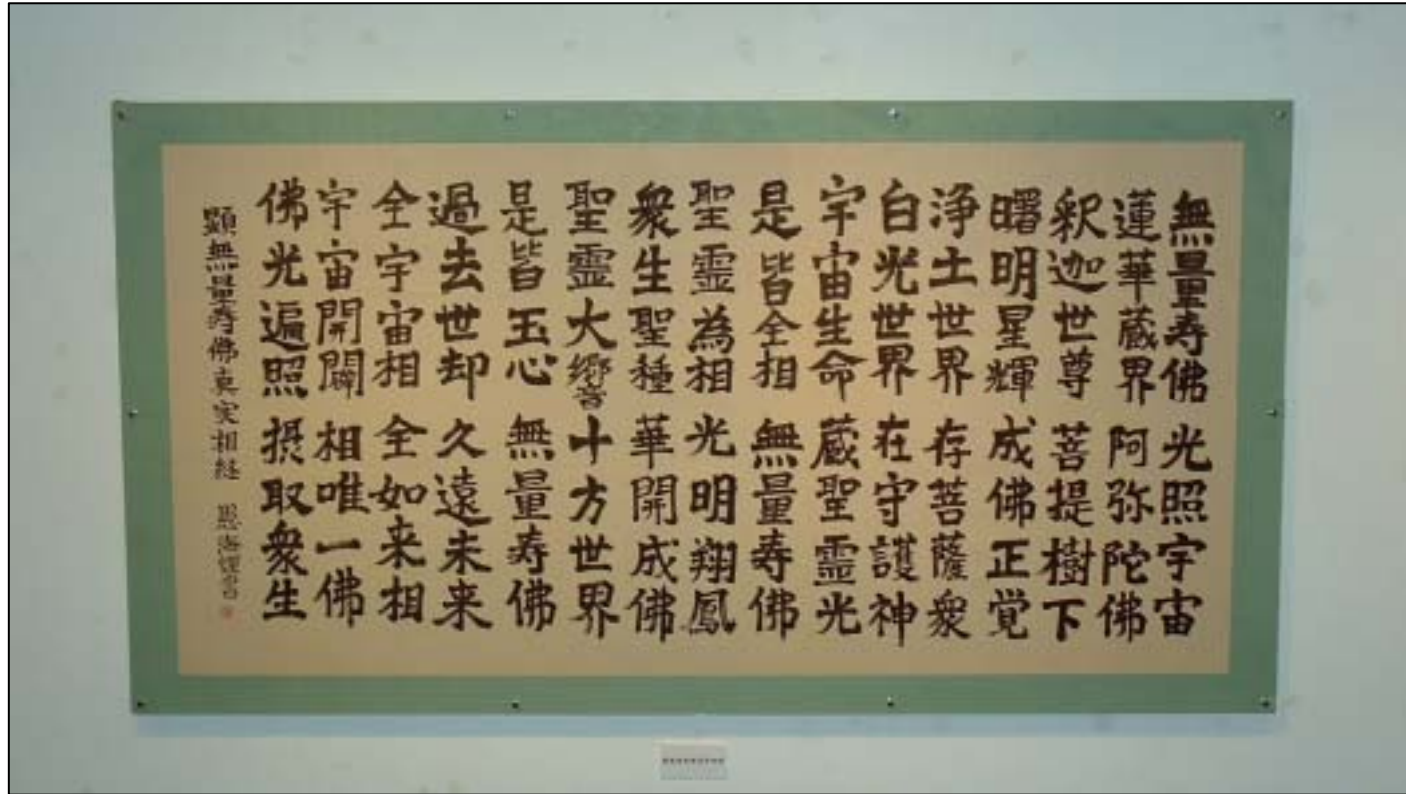 無量寿佛 光照宇宙
蓮華蔵界 阿弥陀佛
釈迦世尊 菩提樹下
曙明星輝 成佛正覚
浄土世界 存菩薩衆
白光世界 在守護神
宇宙生命 蔵聖霊光
是皆全相 無量寿佛
聖霊為相 光明翔鳳
衆生聖種 華開成佛
聖霊大響 十方世界
是皆玉心 無量寿佛
過去世却 久遠未来
全宇宙相 全如来相
宇宙開闢 相唯一佛
佛光遍照 摂取衆生
顕無量寿佛真実相経